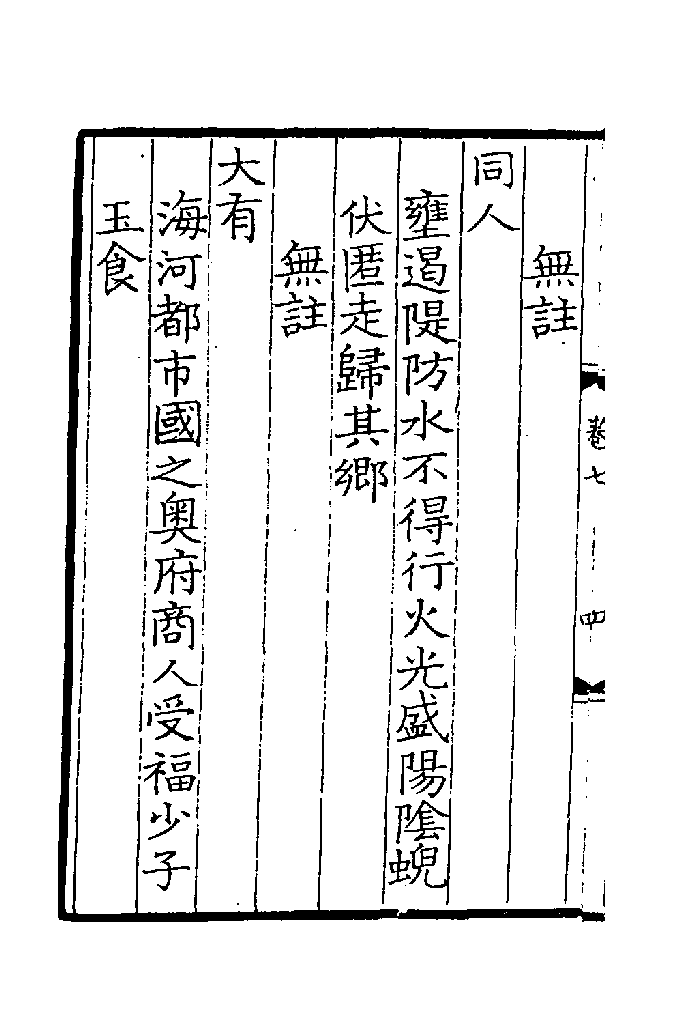 卷七
四
無註
同人
壅遏隄防水不得行火光盛陽陰蜺
伏匿走歸其鄉
無註
大有
海河都市國之奧府商人受福少子
玉食